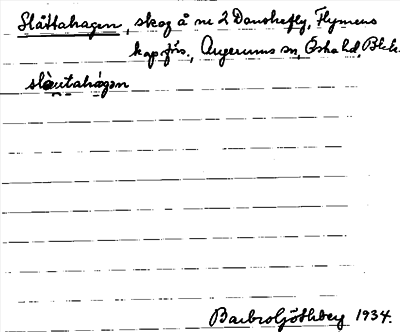 Slättahagen, skog å nr 2 Danskefly, Flymens
kapförs., Augerums sn, Östra hd, Blek.
slæ̀ntahágən
Barbro Göthberg 1934.